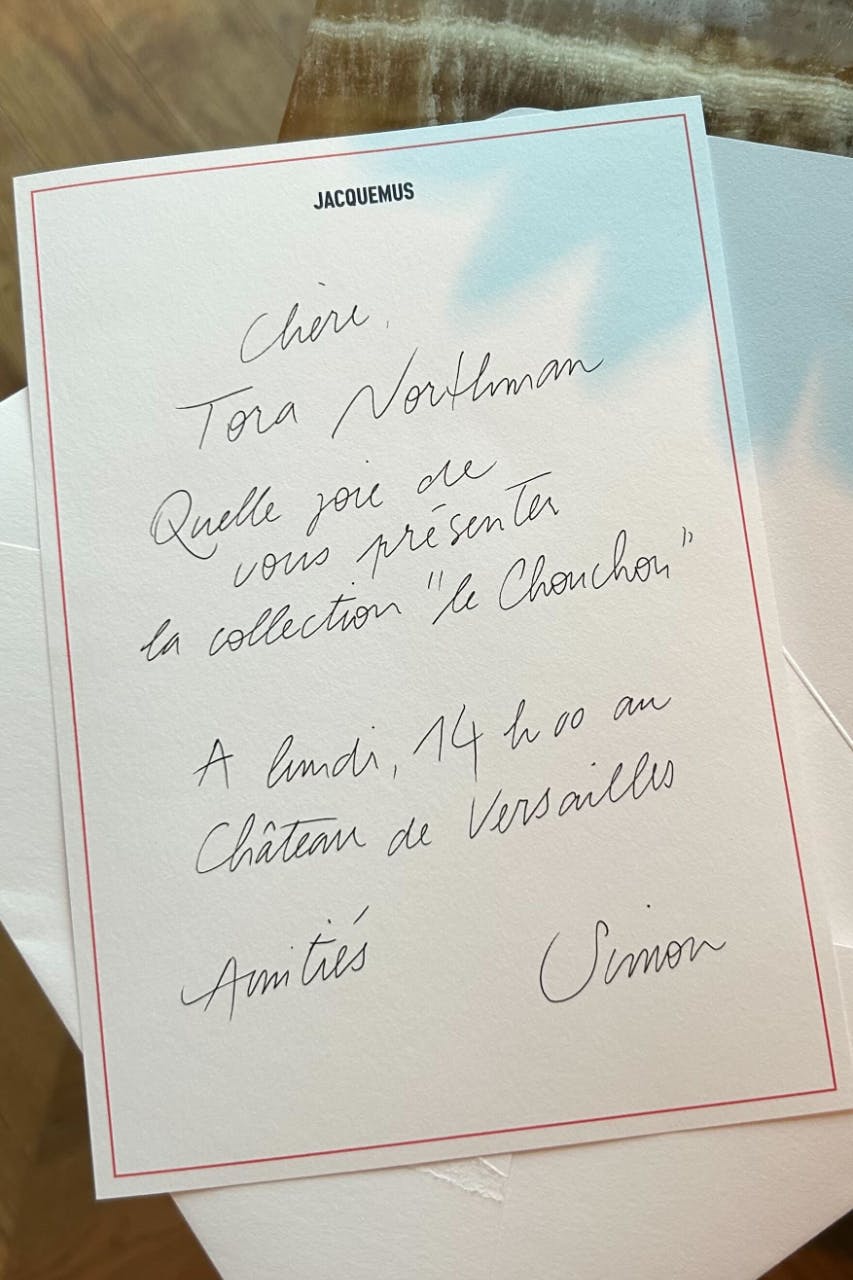 JACQUEMUS
Chère,
Tora Northman
Quelle joie de
vous présenter
la collection "le Chouchou"
A lundi, 14 h 00 au
Château de Versailles
Amitiés
Simon